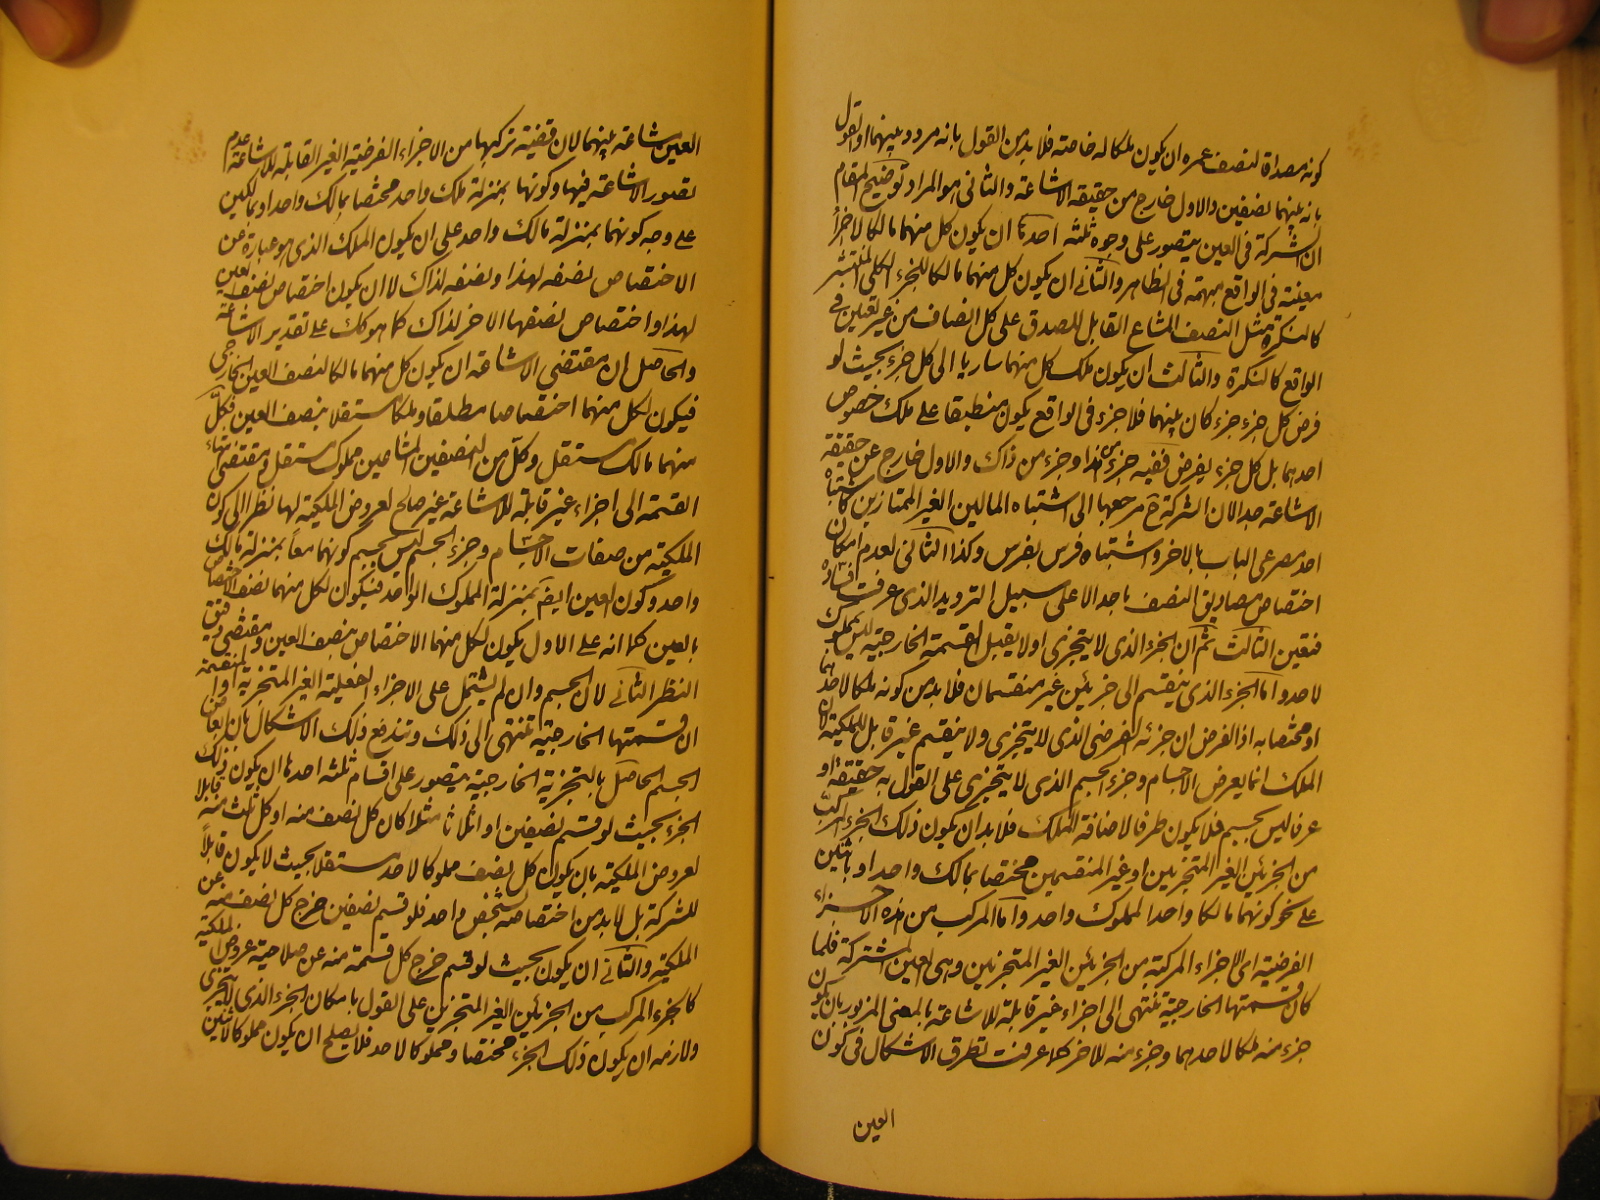 كونه مصداقا لنصف عمره ان يكون ملكا له خاصته فلا بد من القول بانه مردد بينهما او القول
بانه بينهما نصفين والاول خارج من حقيقة الاشاعة والثاني هو المراد توضيح المقام
ان الشركة في العين يتصور على وجوه ثلثه احدها ان يكون كل منهما مالكا لاجزاء
معينة في الواقع مبهمة في الظاهر والثاني ان يكون كل منهما مالكا للجزء الكلي المنتشر
كالنكرة مثل النصف المشاع القابل للصدق على كل انصاف من غير تعين في
الواقع كالنكرة والثالث ان يكون ملك كل منهما ساريا الى كل جزء بحيث لو
فرض كل جزء جزء كان بينهما فلا جزء في الواقع يكون منطبقا على ملك خصوص
احدهما بل كل جزء يفرض ففيه جزء من هذا وجزء من ذاك والاول خارج عن حقيقة
الاشاعة جدا لان الشركة ح مرجعها الى اشتباه المالين الغير الممتازين كاشتباه
احد مصرعى الباب بالاخر واشتباه فرس بفرس وكذا الثاني لعدم امكان
اختصاص مصاديق النصف باحد الا على سبيل الترديد الذي عرفت فساده
فتعين الثالث ثم ان الجزء الذي لا يتجزى او لا يقبل القسمة الخارجية ليس مملوك
لاحد واما الجزء الذي ينقسم الى جزئين غير منقسمان فلا بد من كونه ملكا لاحدهما
او مختصا به اذ الفرض ان جزئه الفرضي الذي لا يتجزى ولا ينقسم غير قابل للملكية لان
الملك انما يعرض الاجسام وجزء الجسم الذي لا يتجزى على القول به حقيقة او
عرفا ليس بجسم فلا يكون طرفا لاضافة الملك فلا بد ان يكون ذلك الجزء المركب
من الجزئين الغير المتجزيين او غير المنقسمين مختصا بمالك واحد او باثنين
على نحو كونهما مالكا واحدا لمملوك واحد واما المركب من هذه الاجزاء
الفرضية اى الاجزاء المركبة من الجزئين الغير المتجزيين وهى العين المشتركة فلما
كان قسمتها الخارجية تنتهى الى اجزاء غير قابلة للاشاعة بالمعنى المزبور بان يكون
جزء منه ملكا لاحدهما وجزء منه للاخر كما عرفت تطرق الاشكال في كون
العين
العين مشاعة بينهما لان قضية تركبها من الاجزاء الفرضية الغير القابلة للاشاعة عدم
تصور الاشاعة فيها وكونها بمنزلة ملك واحد مختصا بمالك واحد او بمالكين
على وجه كونهما بمنزلة مالك واحد على ان يكون الملك الذي هو عبارة عن
الاختصاص نصفه لهذا ونصفه لذاك لا ان يكون اختصاص نصف العين
لهذا واختصاص نصفها الاخر لذاك كما هو كك على تقدير الاشاعة
والحاصل ان مقتضى الاشاعة ان يكون كل منهما مالكا لنصف العين الخارجى
فيكون لكل منهما اختصاصا مطلقا وملكا مستقلا بنصف العين فكل
منهما مالك مستقل وكل من النصفين المشاعين مملوك مستقل ومقتضى انتهاء
القسمة الى اجزاء غير قابلة للاشاعة غير صالح لعروض الملكية لها نظرا الى كون
الملكية من صفات الاجسام وجزء الجسم ليس بجسم كونهما معا بمنزلة مالك
واحد وكون العين ايضا بمنزلة المملوك الواحد فيكون لكل منهما نصف الاختصاص
بالعين كما انه على الاول يكون لكل منهما الاختصاص بنصف العين ومقتضى دقيق
النظر الثاني لان الجسم وان لم يشتمل على الاجزاء الفعلية الغير المتجزية او المنقسمة
ان قسمتها الخارجية تنتهى الى ذلك وتندفع ذلك الاشكال بان ابعاض
الجسم الحاصل بالتجزية الخارجية يتصور على اقسام ثلثه احدها ان يكون ذلك
الجزء بحيث لو قسم نصفين او اثلاثا مثلا كان كل نصف منه او كل ثلث منه قابلا
لعروض الملكية بان يكون كل نصف مملوكا لاحد مستقلا بحيث لا يكون قابلا
للشركة بل لا بد من اختصاصه بشخص واحد فلو قسم نصفين خرج كل نصف منه عن
الملكية والثاني ان يكون بحيث لو قسم خرج كل قسمة منه عن صلاحية عروض الملكية
كالجزء المركب من الجزئين الغير المتجزيين على القول بامكان الجزء الذي لا يتجزى
ولازمه ان يكون ذلك الجزء مختصا ومملوكا لاحد فلا يصلح ان يكون مملوكا لاثنين